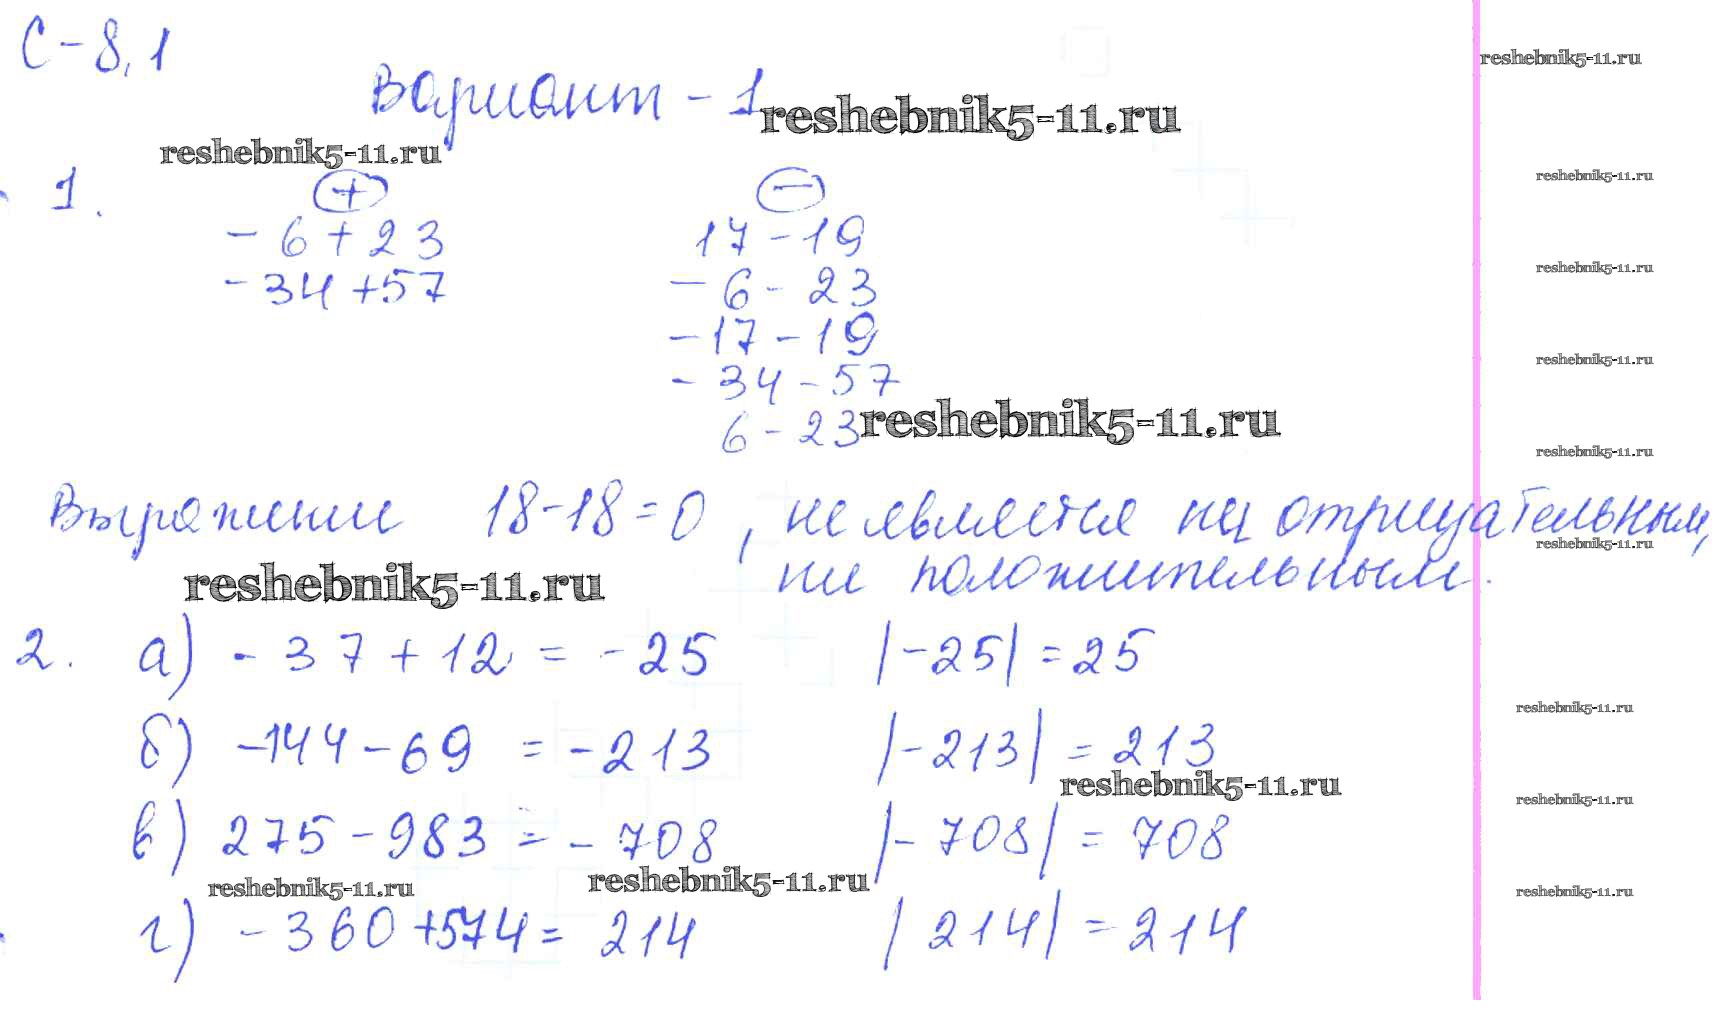 С-8.1
Вариант - 1 reshebnik5-11.ru
reshebnik5-11.ru
reshebnik5-11.ru
1. + −
reshebnik5-11.ru
- 6 + 23 17 - 19
reshebnik5-11.ru
- 34 + 57 - 6 - 23
- 17 - 19
reshebnik5-11.ru
- 34 - 57
6 - 23 reshebnik5-11.ru
reshebnik5-11.ru
Выражении 18-18=0, не является ни отрицательным,
reshebnik5-11.ru
ни положительным.
reshebnik5-11.ru
2. а) - 37 + 12 = - 25 |-25| = 25
reshebnik5-11.ru
б) -144 - 69 = - 213 |-213| = 213
reshebnik5-11.ru
reshebnik5-11.ru
в) 275 - 983 = - 708 |- 708| = 708
reshebnik5-11.ru reshebnik5-11.ru
reshebnik5-11.ru
г) - 360 + 574 = 214 |214| = 214